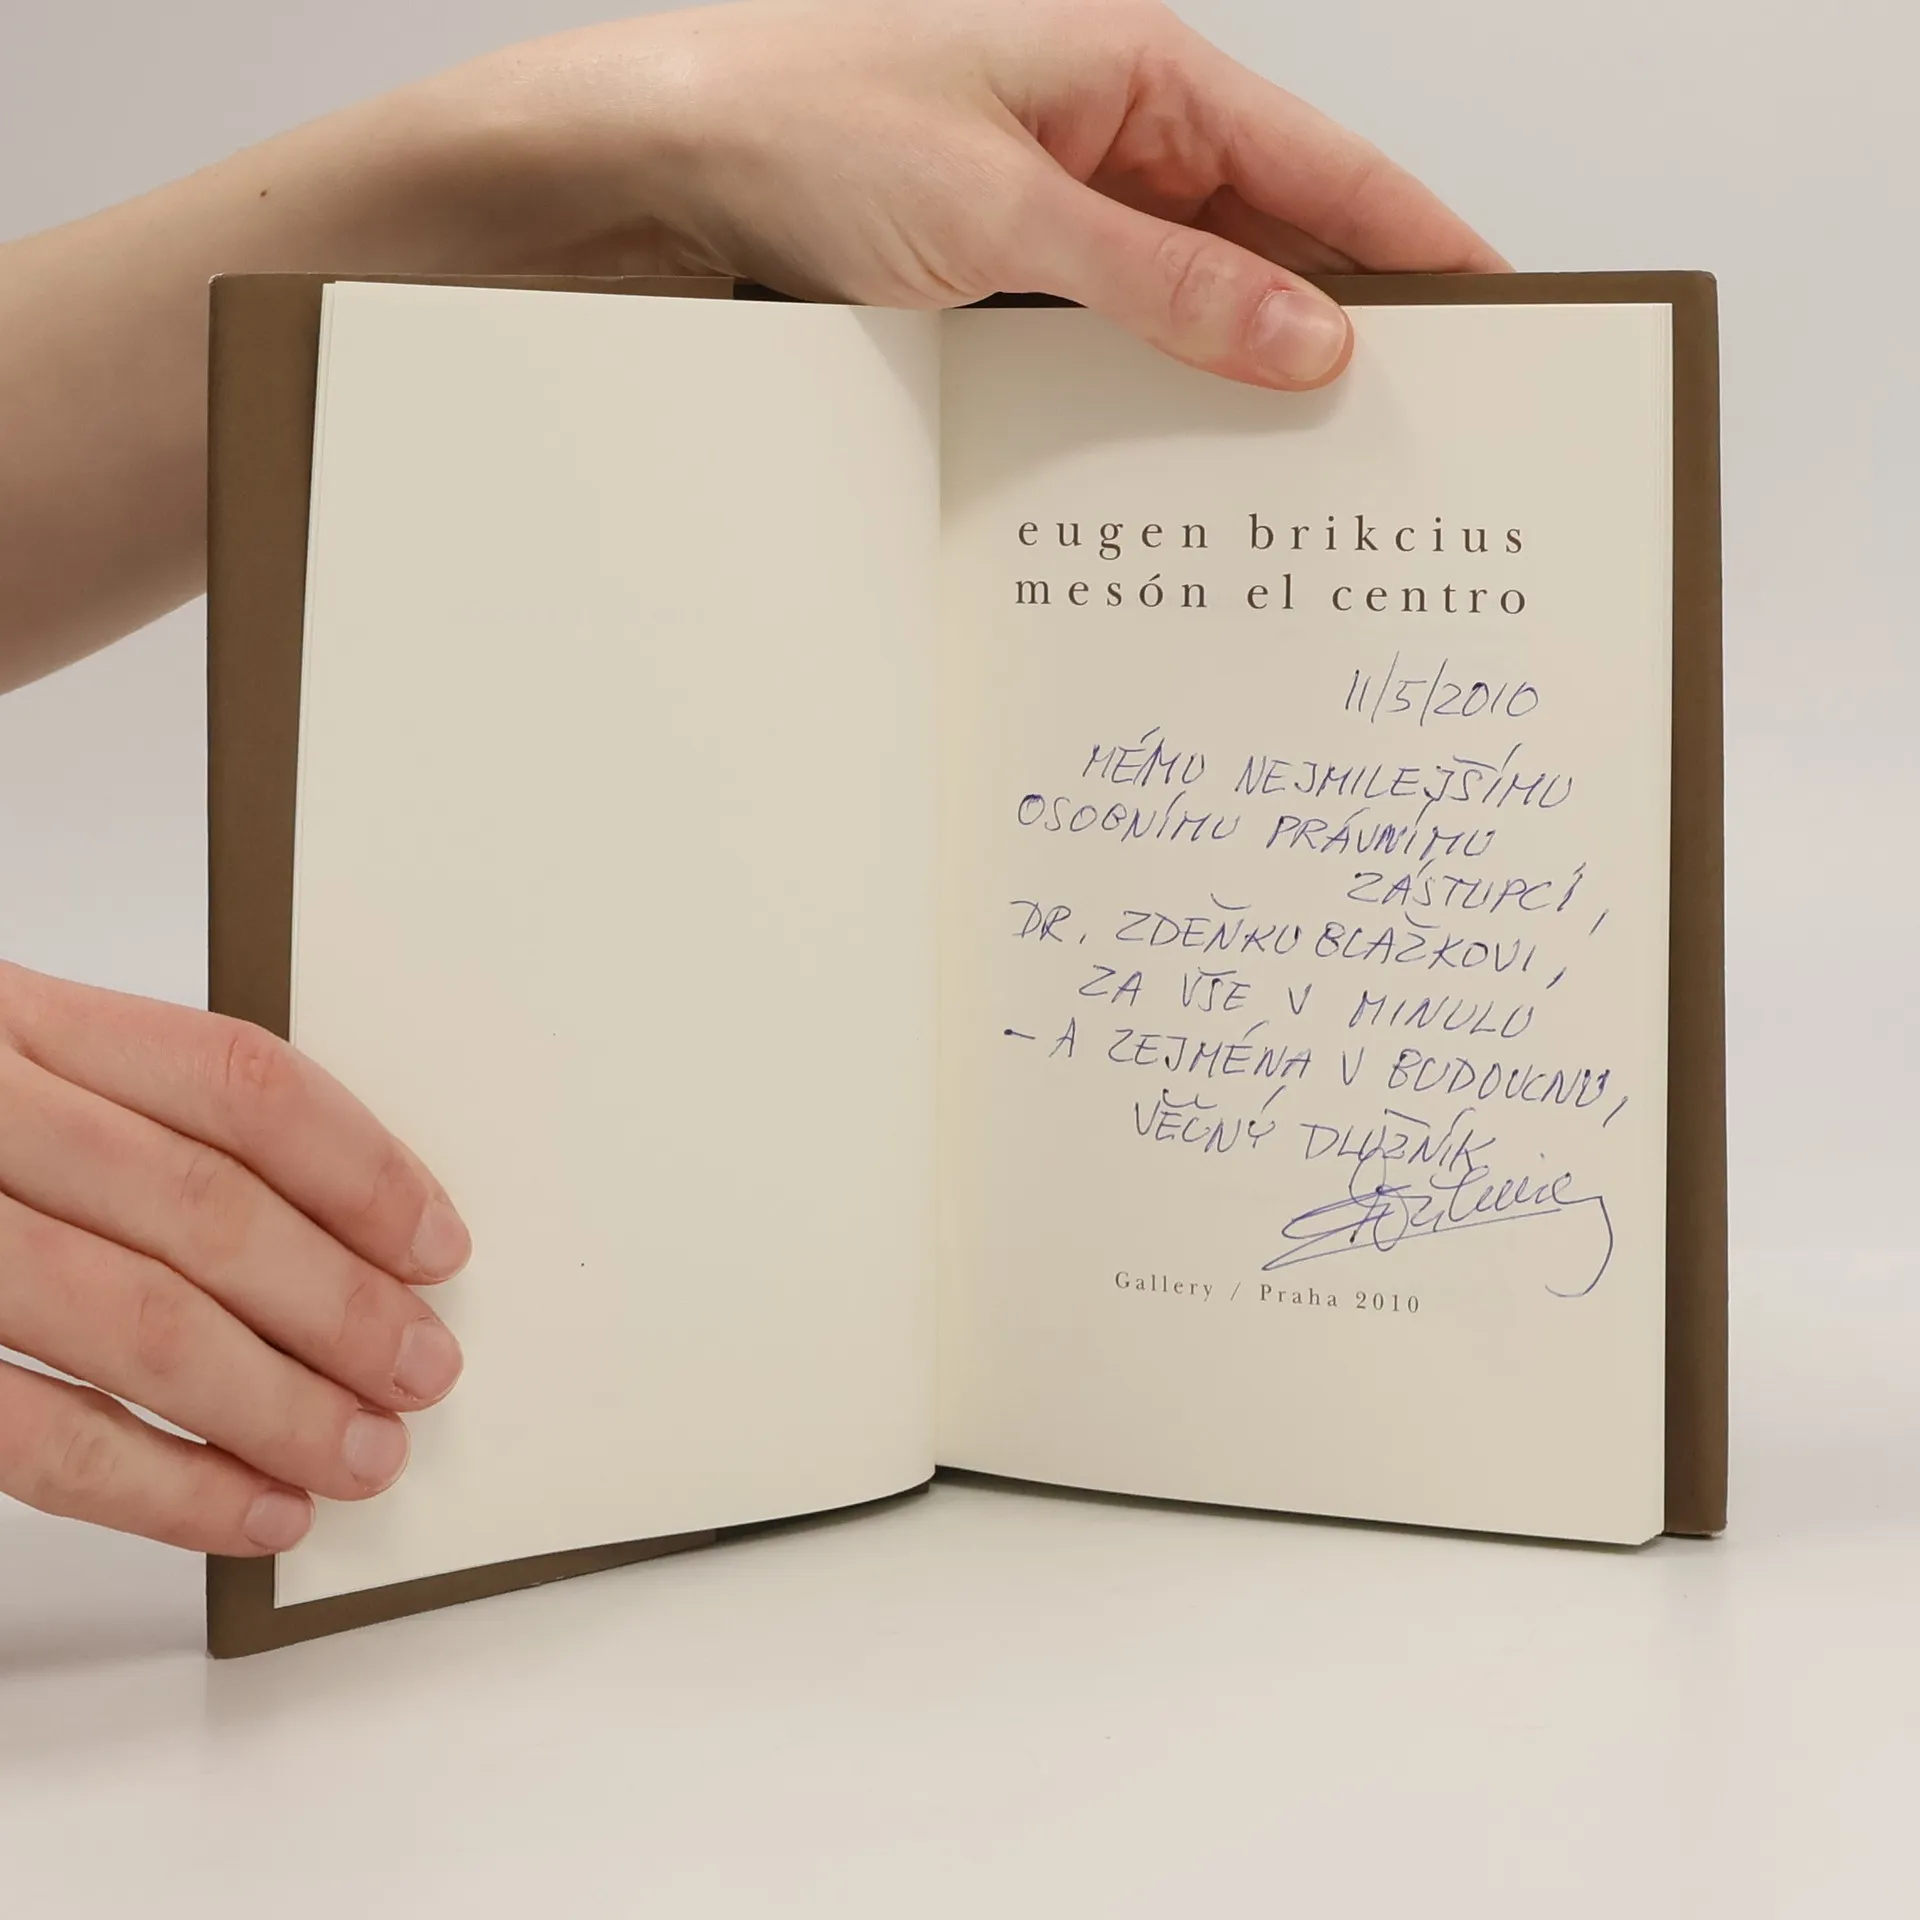 eugen brikcius
mesón el centro
11/5/2010
MÉMU NEJMILEJŠÍMU
OSOBNÍMU PRÁVNÍMU
ZÁSTUPCI,
DR. ZDEŇKU BLAŽKOVI,
ZA VŠE V MINULU
– A ZEJMÉNA V BUDOUCNU,
VĚČNÝ DLUŽNÍK
Gallery / Praha 2010